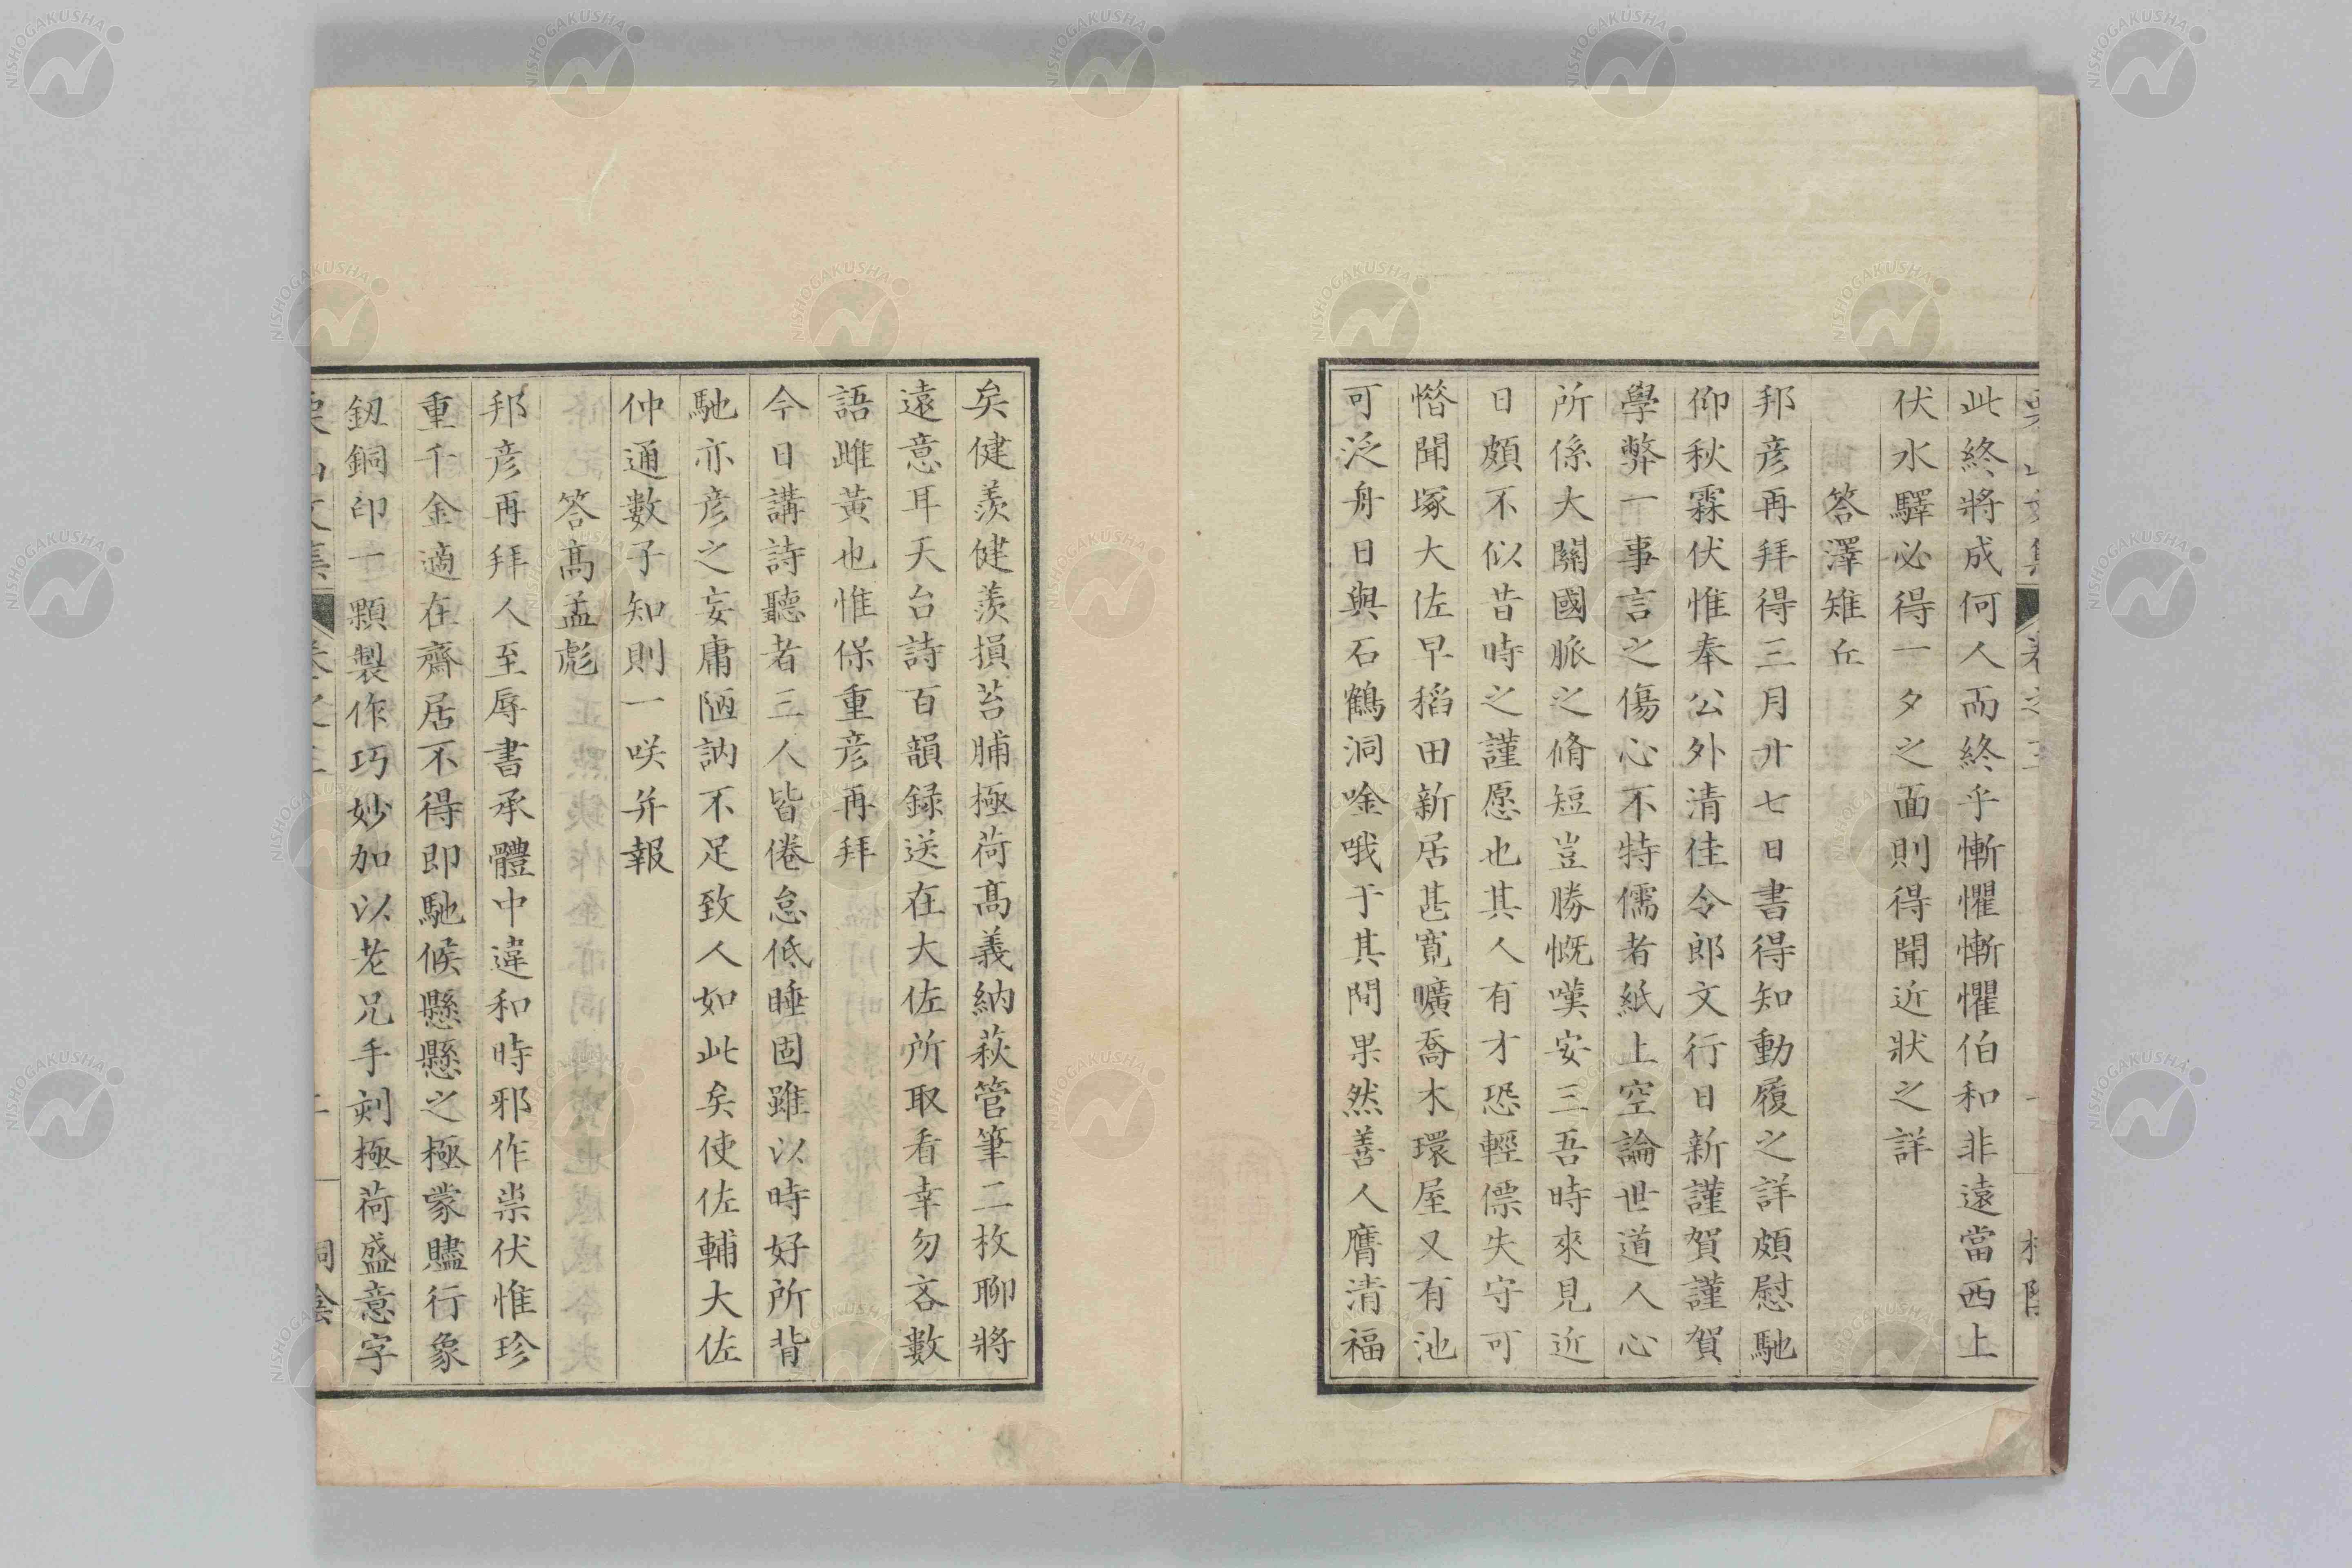 此終將成何人而終乎慚懼慚懼伯和非遠當西上
伏水驛必得一夕之面則得聞近狀之詳
答澤雉丘
邦彦再拜得三月廾七日書得知動履之詳頗慰馳
仰秋霖伏惟奉公外清佳令郎文行日新謹賀謹賀
學弊一事言之傷心不特儒者紙上空論世道人心
所係大關國脈之脩短豈勝慨嘆安三吾時來見近
日頗不似昔時之謹愿也其人有才恐輕僄失守可
憯聞塚大佐早稻田新居甚寛曠喬木環屋又有池
可泛舟日與石鶴洞唫哦于其間果然善人膺清福
矣健羨健羨損苔脯極荷髙義納萩管筆二枚聊將
遠意耳天台詩百韻録送在大佐所取看幸勿吝數
語雌黃也惟保重彦再拜
今日講詩聽者三人皆倦怠低睡固雖以時好所背
馳亦彦之妄庸陋訥不足致人如此矣使佐輔大佐
仲通數子知則一咲并報
答髙孟彪
邦彦再拜人至辱書承體中違和時邪作祟伏惟珍
重千金適在齋居不得即馳候懸懸之極蒙贐行象
釼銅印一顆製作巧妙加以老兄手刻極荷盛意字